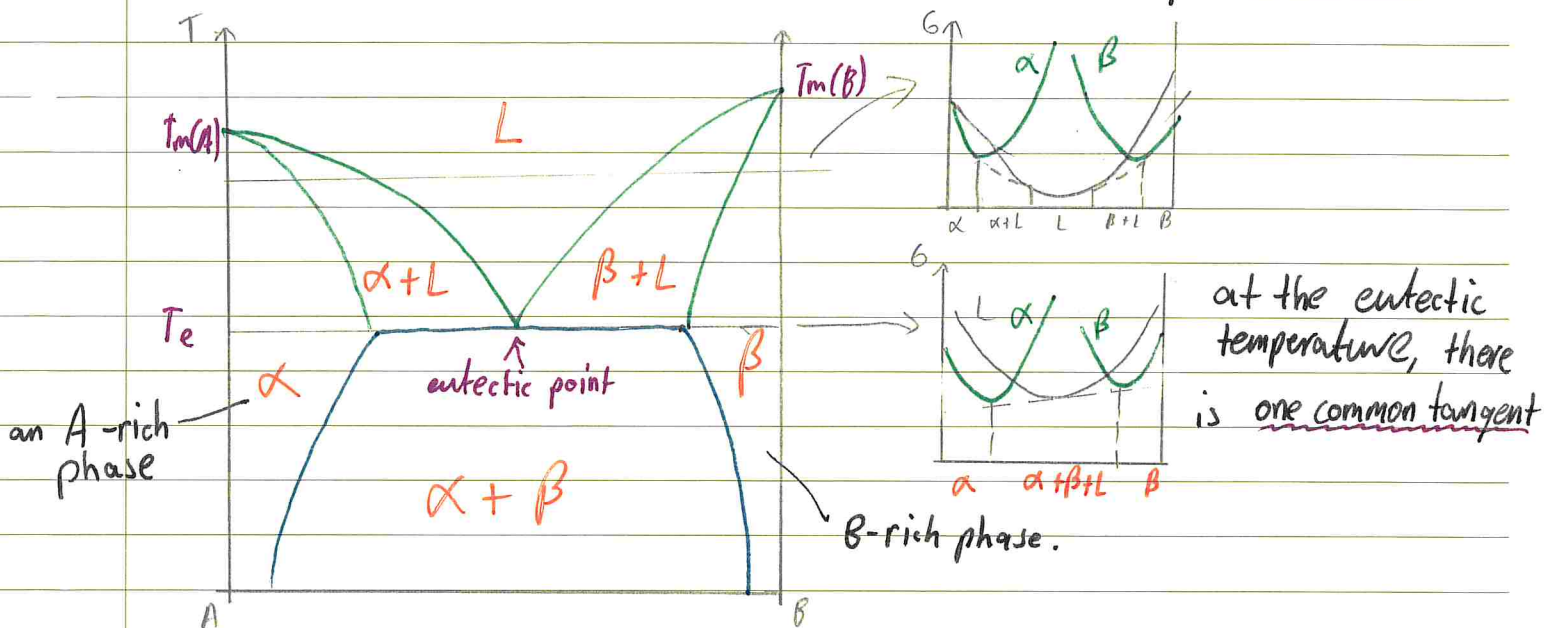 T
Tm(A)
Tm(B)
L
α+L
β+L
Te
eutectic point
α
β
an A-rich
phase
α + β
B-rich phase.
A
B
G
α
β
α
α+L
L
β+L
β
G
L
α
β
α
α+β+L
β
at the eutectic
temperature, there
is one common tangent